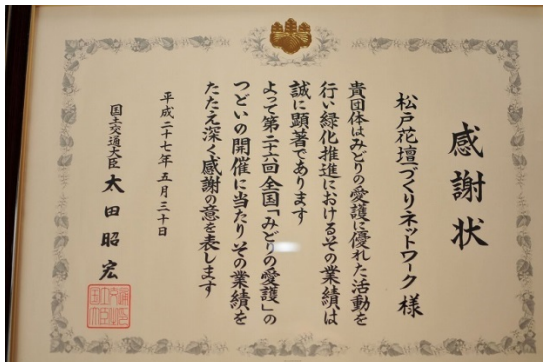 感謝状
松戸花壇づくりネットワーク 様
貴団体はみどりの愛護に優れた活動を
行い緑化推進におけるその業績は
誠に顕著であります
よって第二十六回全国「みどりの愛護」の
つどいの開催に当たりその業績を
たたえ深く感謝の意を表します
平成二十七年五月三十日
国土交通大臣 太田昭宏